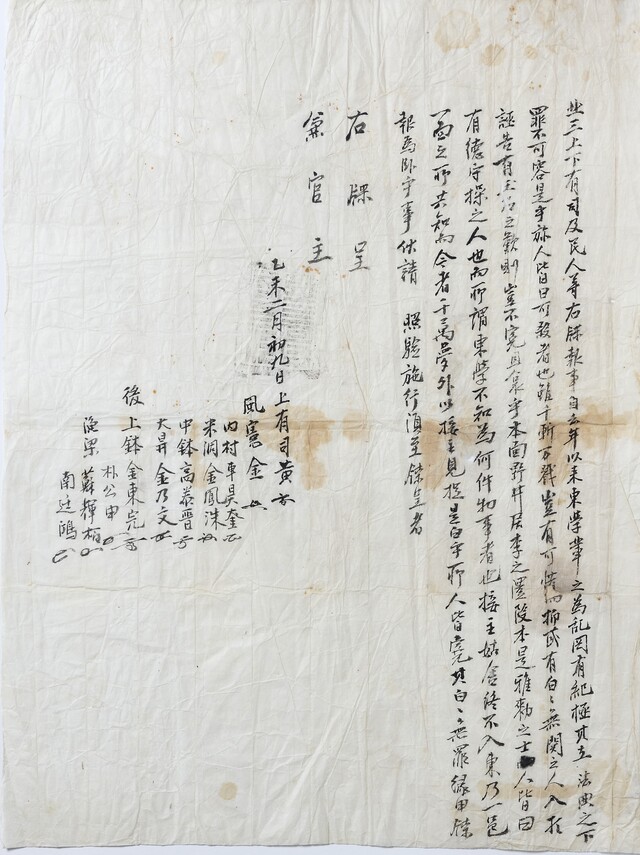 些三上下有司及民人等右牒報事自去年以来東學輩之為乱罔有紀極其在法典之下
罪不可容是乎旀人皆曰可殺者也雖千斬万戮豈有可惜而抑或有白〻無関之人入於
誣告有玉石之歎則豈不寃且哀乎本面野井居李之運段本是雅勅之士人皆曰
有德守操之人也而所謂東學不知為何件物事者也接主姑舍終不入東乃一邑
一面之所共知而今者千萬夢外以接主見捉是白乎所人皆寃其白〻無罪緣由牒
報為臥乎事伏請 照驗施行須至牒呈者
右牒呈
兼官主
乙未二月初九日上有司黃
風憲金
內村車昊奎
米洞金鳳洙
中鉢高養晉
大昇金乃文
後上鉢金東完
朴公甲
漁梁蘇輝栢
南廷鴻